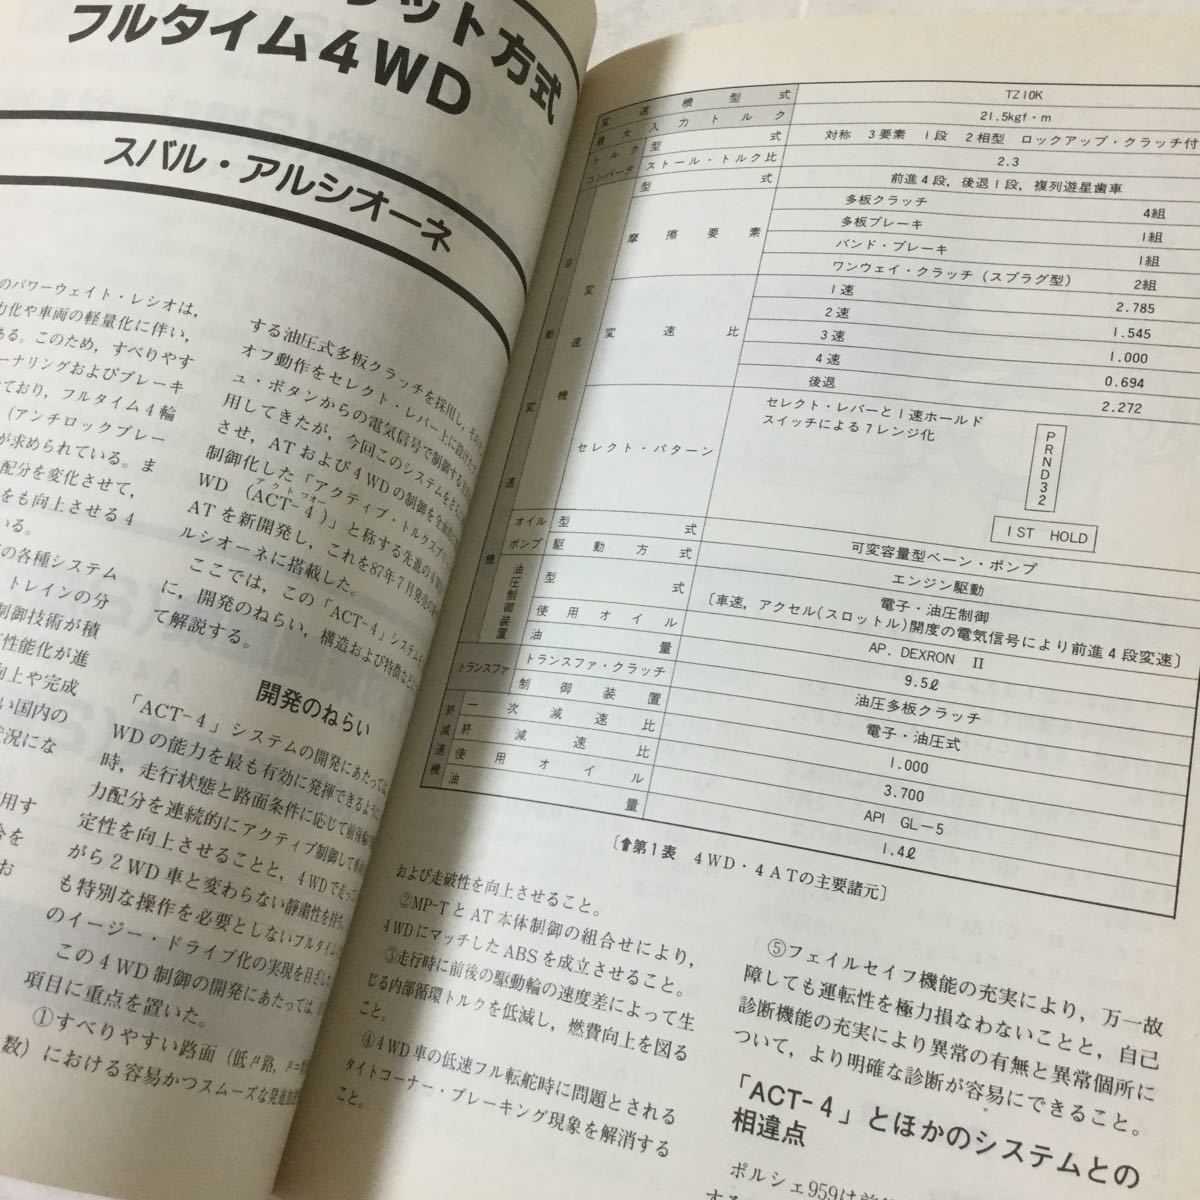 ット方式
フルタイム4WD
スバル・アルシオーネ
のパワーウェイト・レシオは,
力化や車両の軽量化に伴い,
ある。このため, すべりやす
ーナリングおよびブレーキ
ており, フルタイム4輪
(アンチロックブレー
が求められている。ま
配分を変化させて,
をも向上させる4
いる。
の各種システム
トレインの分
制御技術が積
性能化が進
向上や完成
い国内の
状況にな
用す
合を
お
する油圧式多板クラッチを採用し, その
オフ動作をセレクト・レバー上に設けた
ュ・ボタンからの電気信号で制御する方
用してきたが, 今回このシステムをさら
させ, ATおよび4WDの制御を全
制御化した「アクティブ・トルクスプ
アクトフォー
WD(ACT-4)」と称する先進の4
ATを新開発し, これを87年7月発売の
ルシオーネに搭載した。
ここでは, この「ACT-4」システム
に, 開発のねらい, 構造および特徴など
て解説する。
開発のねらい
「ACT-4」システムの開発にあたっては
WDの能力を最も有効に発揮できるように
時, 走行状態と路面条件に応じて前後
力配分を連続的にアクティブ制御して
定性を向上させることと, 4WDで走
がら2WD車と変わらない静粛性を持ち,
も特別な操作を必要としないフルタイム
のイージー・ドライブ化の実現を目ざした
この4WD制御の開発にあたっては,
項目に重点を置いた。
①すべりやすい路面(低μ路, μ=
数)における容易かつスムーズな発進
変速機型式 TZ10K
最大入力トルク 21.5kgf・m
トルクコンバータ 型式 対称 3要素 1段 2相型 ロックアップ・クラッチ付
ストール・トルク比 2.3
自動変速機 型式 前進4段, 後退1段, 複列遊星歯車
摩擦要素 多板クラッチ 4組
多板ブレーキ 1組
バンド・ブレーキ 1組
ワンウェイ・クラッチ(スプラグ型) 2組
変速比 1速 2.785
2速 1.545
3速 1.000
4速 0.694
後退 2.272
変速機 セレクト・パターン セレクト・レバーと1速ホールド
スイッチによる7レンジ化
PRND32
1ST HOLD
オイルポンプ 型式 可変容量型ベーン・ポンプ
駆動方式 エンジン駆動
油圧制御装置 型式 電子・油圧制御
〔車速, アクセル(スロットル)開度の電気信号により前進4段変速〕
使用オイル AP. DEXRON II
油量 9.5ℓ
トランスファ トランスファ・クラッチ 油圧多板クラッチ
制御装置 電子・油圧式
終減速機 一次減速比 1.000
終減速比 3.700
使用オイル API GL-5
油量 1.4ℓ
〔⬆第1表 4WD・4ATの主要諸元〕
および走破性を向上させること。
②MP-TとAT本体制御の組合せにより,
4WDにマッチしたABSを成立させること。
③走行時に前後の駆動輪の速度差によって生
じる内部循環トルクを低減し, 燃費向上を図る
こと。
④4WD車の低速フル転舵時に問題とされる
タイトコーナー・ブレーキング現象を解消する
こと。
⑤フェイルセイフ機能の充実により, 万一故
障しても運転性を極力損なわないことと, 自己
診断機能の充実により異常の有無と異常個所に
ついて, より明確な診断が容易にできること。
「ACT-4」とほかのシステムとの
相違点
ポルシェ959は前後